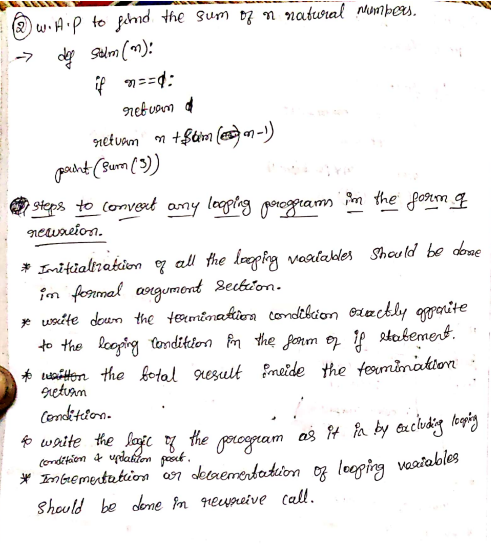 ② W.A.P to find the sum of n natural numbers.
→ def sum(n):
if n==0:
return 0
return n + sum(n-1)
print(sum(3))
steps to convert any looping programs in the form of
recursion.
* Initialization of all the looping variables should be done
in formal argument section.
* write down the termination condition exactly opposite
to the looping condition in the form of if statement.
* the total result inside the termination
return
condition.
* write the logic of the program as it is by excluding looping
condition & updation part.
* Incrementation or decrementation of looping variables
should be done in recursive call.